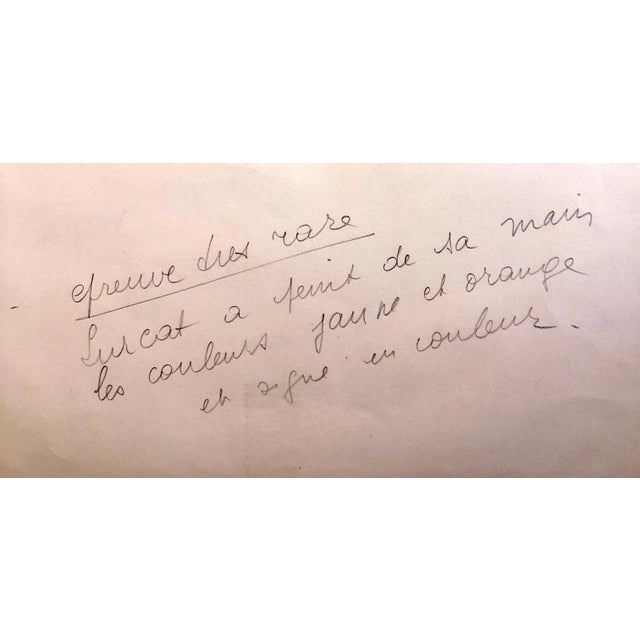 epreuve tres rare
Lurcat a peint de sa main
les couleurs jaune et orange
et signé en couleur.